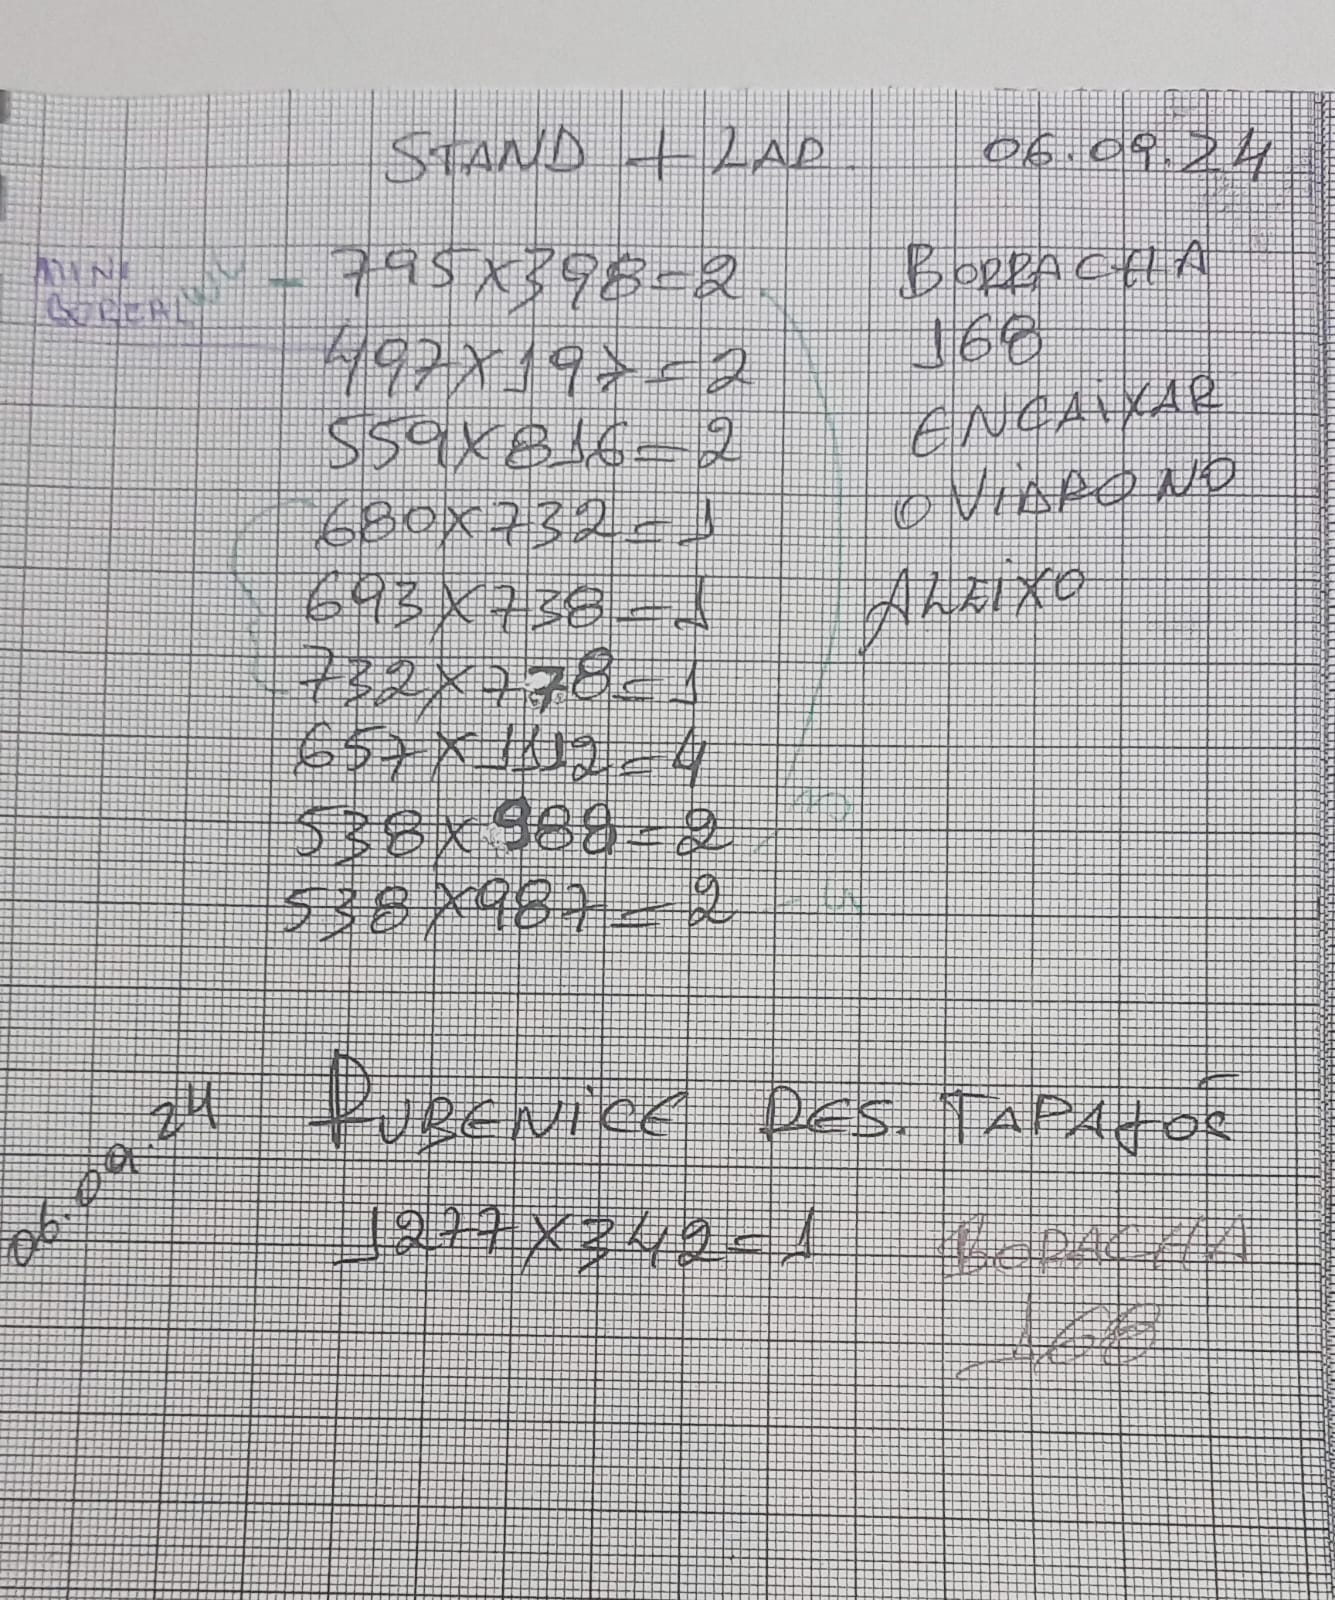 STAND + LAD. 06.09.24
MINI
BOREAL
795x398=2
497x197=2
559x816=2
680x732=1
693x738=1
732x778=1
657x1112=4
538x988=2
538x987=2
BORRACHA
168
ENCAIXAR
O VIDRO NO
ALEIXO
06.09.24
RUBENICE RES. TAPAJOS
1277x342=1
BORACHA
168